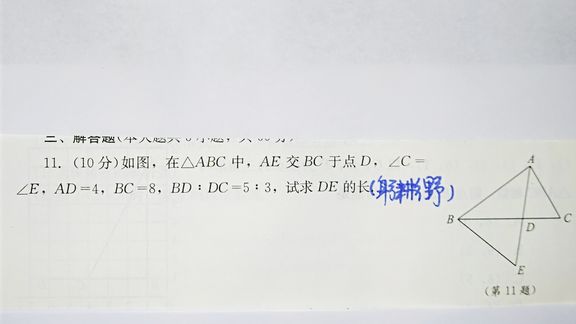 三、解答题(本大题共
11. (10分)如图，在△ABC中，AE交BC于点D，∠C=
∠E，AD=4，BC=8，BD∶DC=5∶3，试求DE的长
A
B
D
C
E
(第11题)